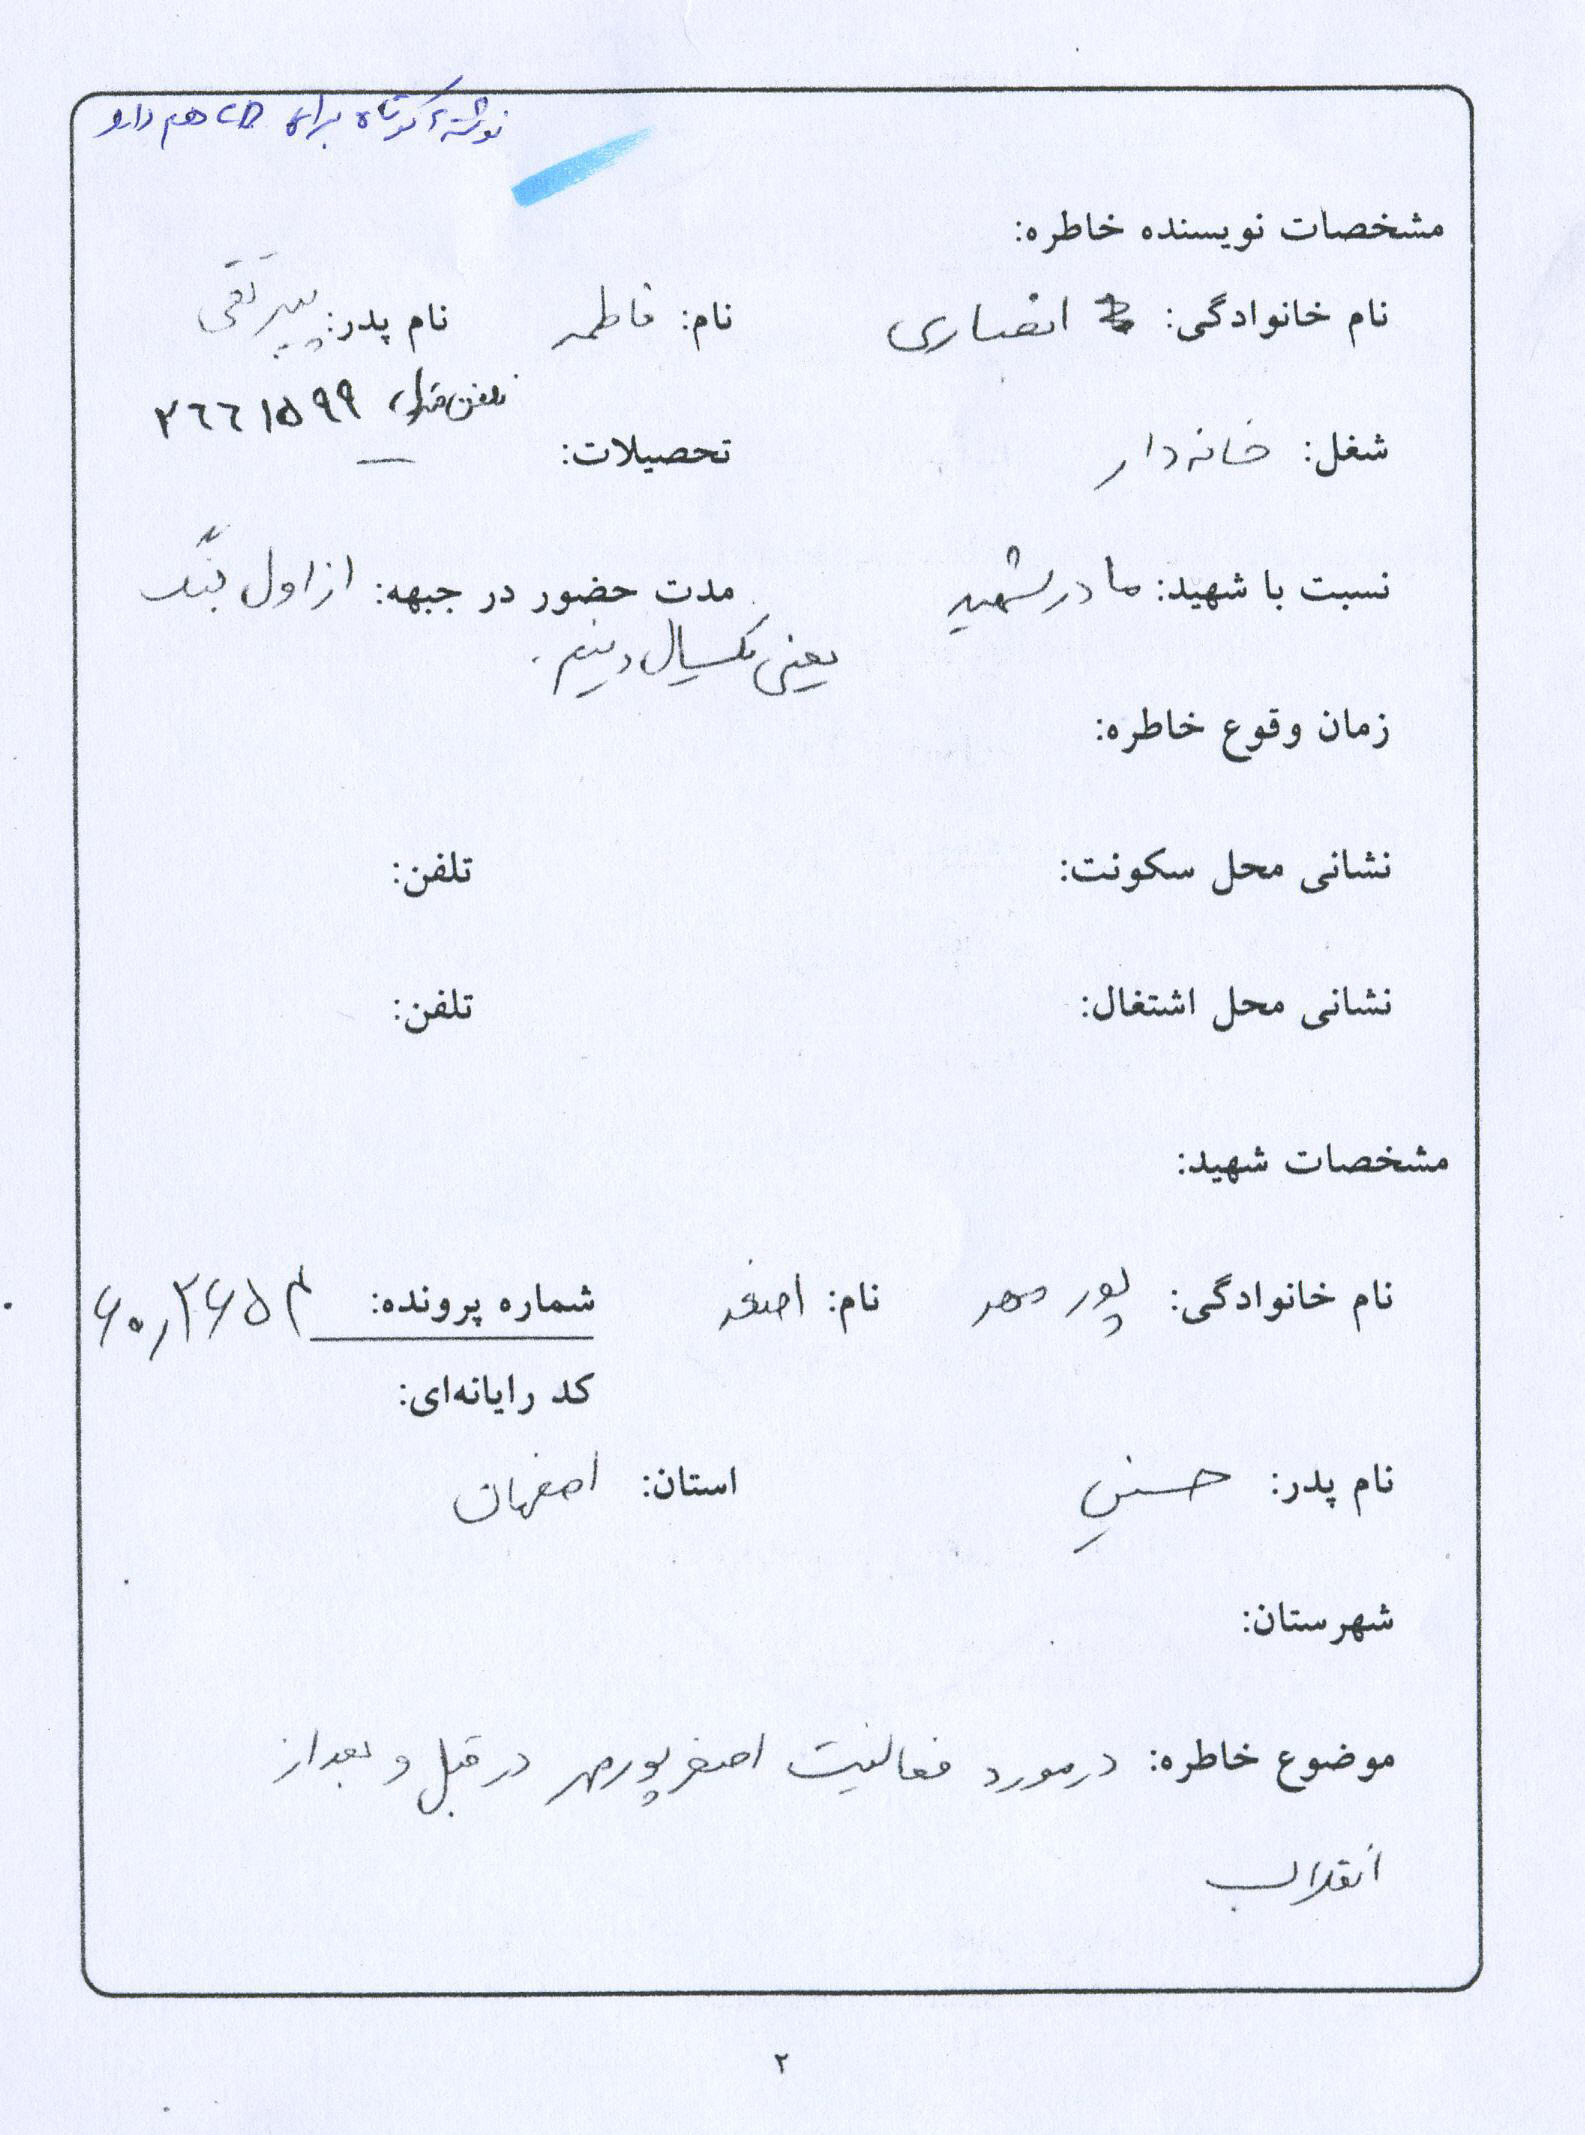 نوشتهٔ کوتاه برای هم دارد
مشخصات نویسنده خاطره:
نام خانوادگی: انصاری نام: فاطمه نام پدر: تقی
تلفن منزل ۲۶۶۱۵۹۹
شغل: خانه دار تحصیلات: —
نسبت با شهید: مادر شهید مدت حضور در جبهه: از اول جنگ
یعنی یکسال و نیم.
زمان وقوع خاطره:
نشانی محل سکونت: تلفن:
نشانی محل اشتغال: تلفن:
مشخصات شهید:
نام خانوادگی: پور مهر نام: اصغر شماره پرونده: ۶۰٫۲۶۵۳
کد رایانه‌ای:
نام پدر: حسین استان: اصفهان
شهرستان:
موضوع خاطره: در مورد فعالیت اصغر پورمهر در قبل و بعد از
انقلاب
۲